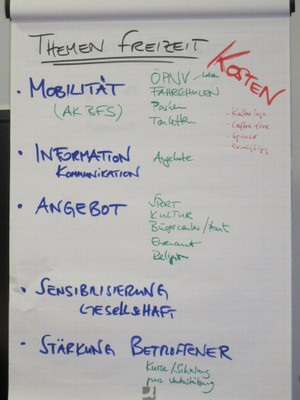 THEMEN FREIZEIT
KOSTEN
• MOBILITÄT
(AK BFS)
ÖPNV
FAHRSCHULEN
Parken
Toiletten
• INFORMATION
KOMMUNIKATION
Angebote
• ANGEBOT
SPORT
KULTUR
Bürgercenter/Amt
Ehrenamt
Religion
• SENSIBILISIERUNG
GESELLSCHAFT
• STÄRKUNG BETROFFENER
Kurse/Schulung
zur Unterstützung